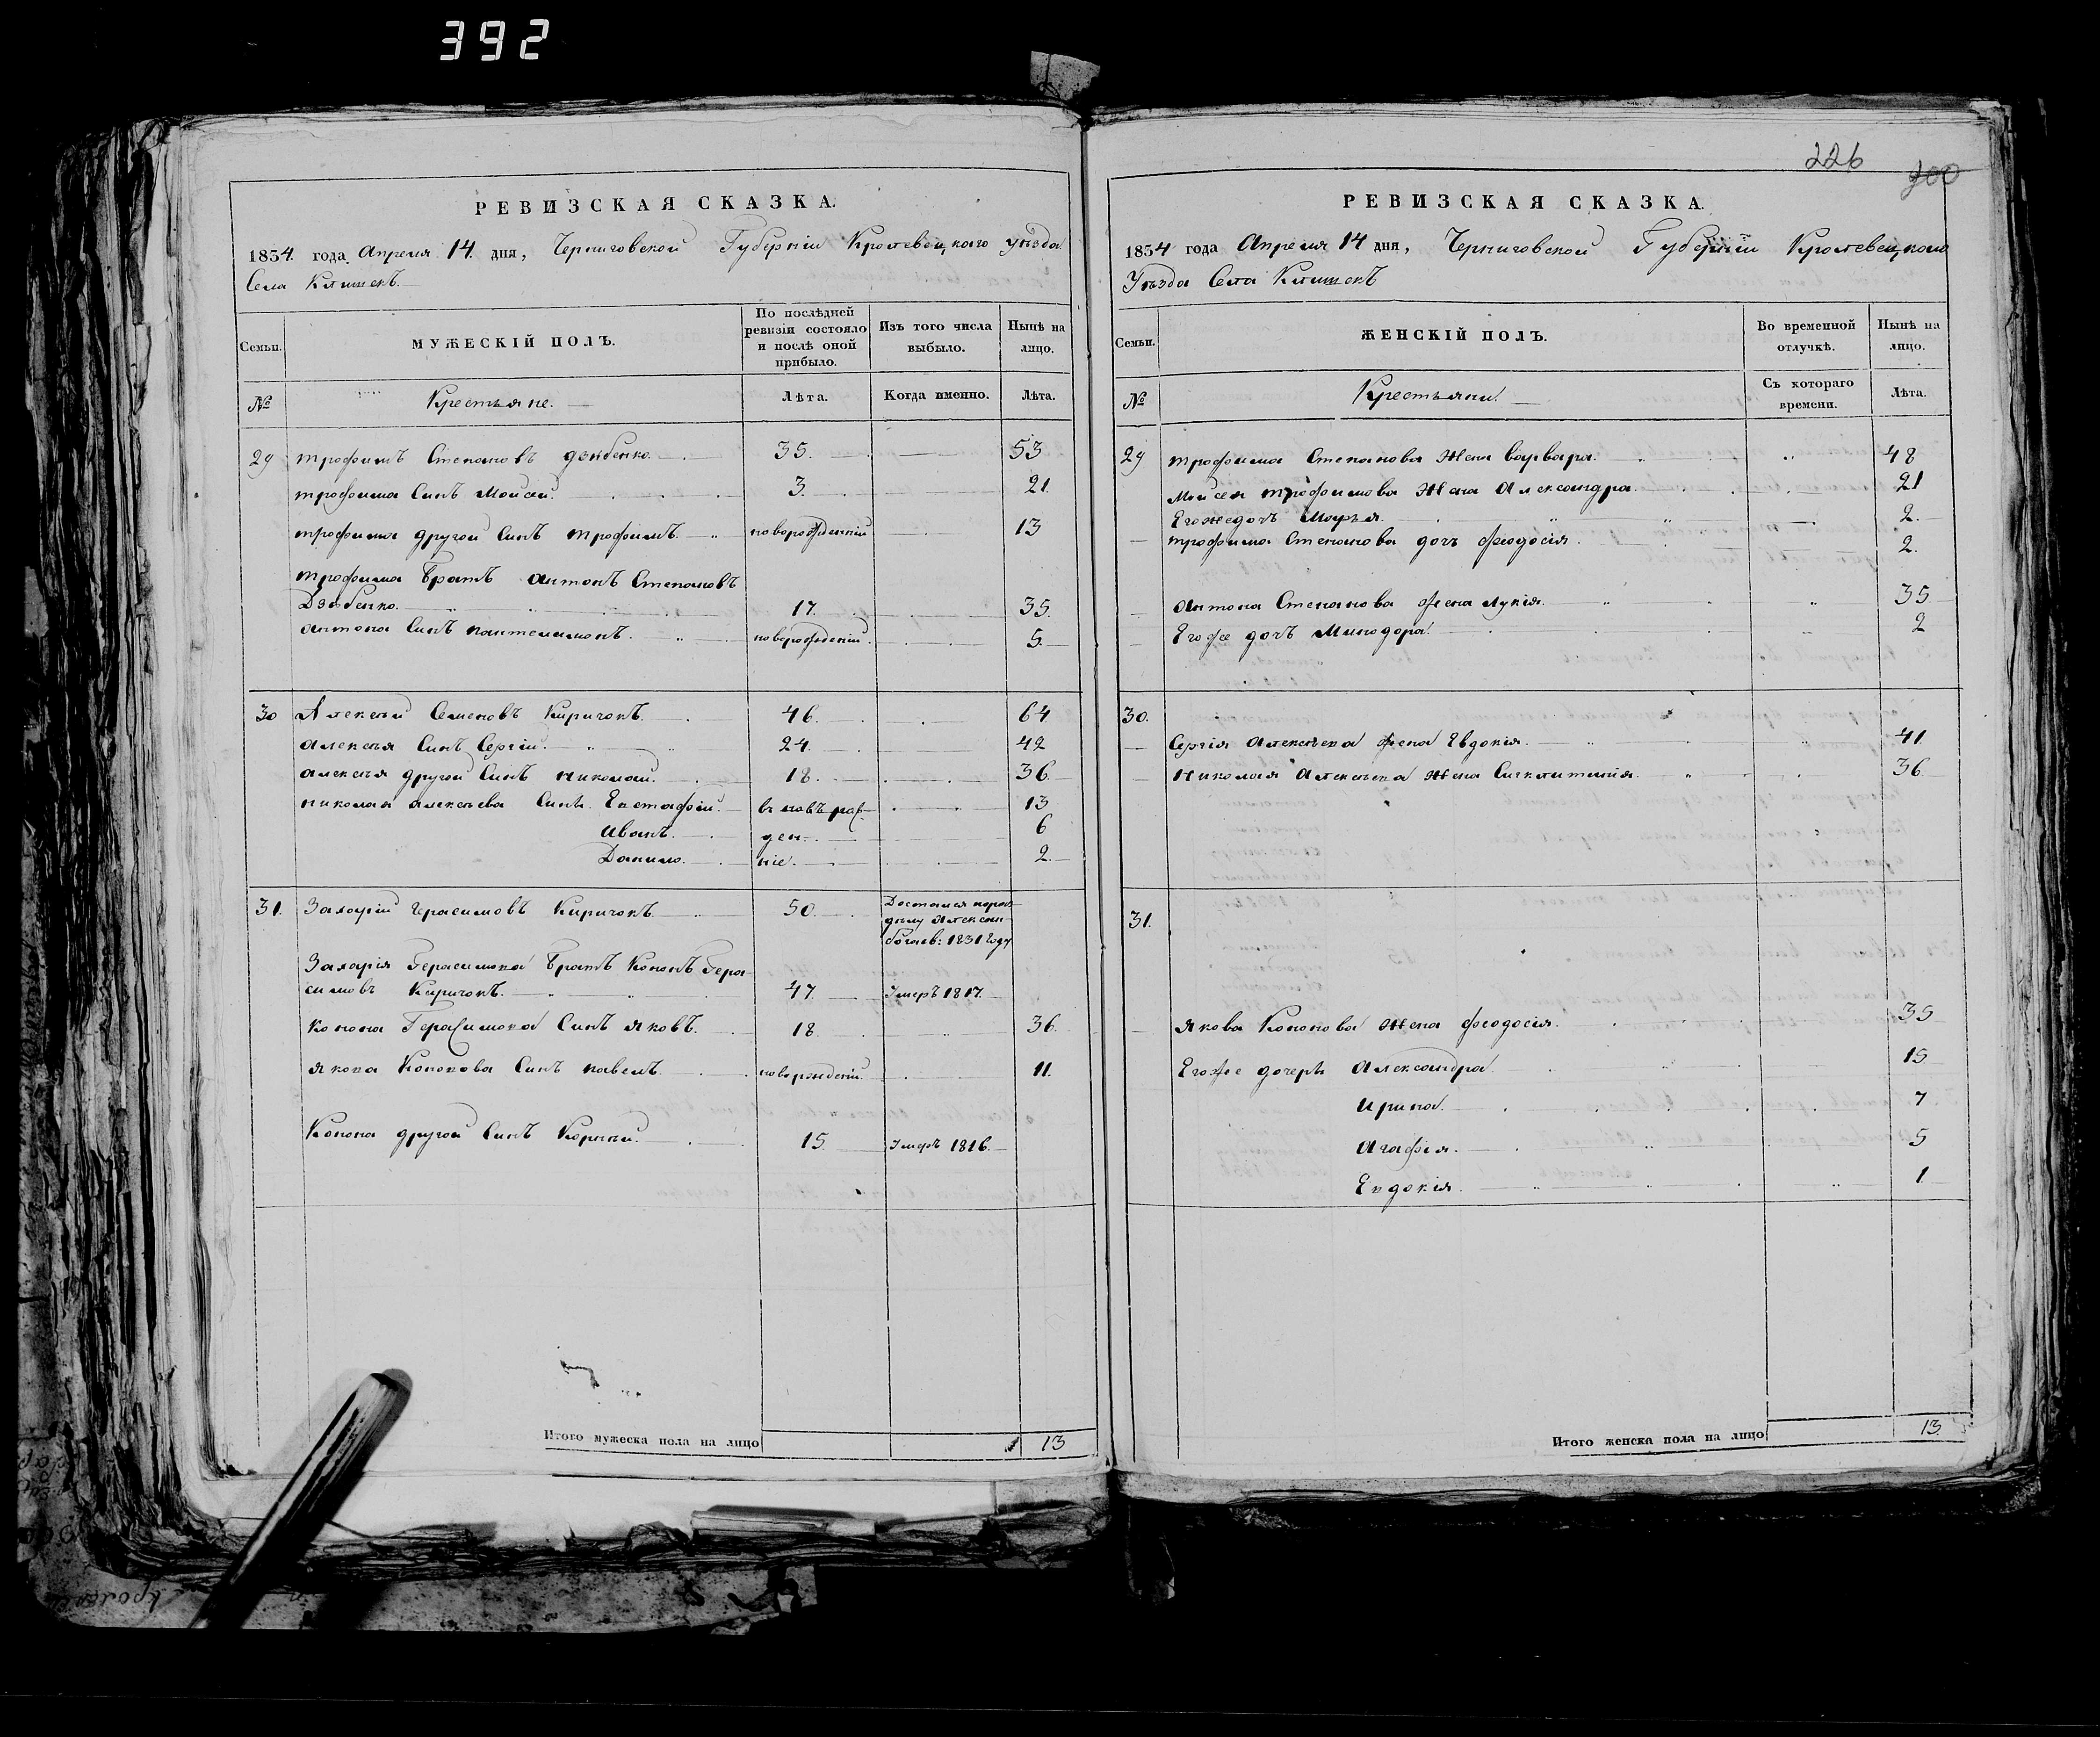 392
РЕВИЗСКАЯ СКАЗКА.
1834. года Апреля 14. дня, Черниговской Губерніи Кролевецкаго уѣзда
Села Клишекъ.
Семьи.
МУЖЕСКІЙ ПОЛЪ.
По послѣдней ревизіи состояло и послѣ оной прибыло.
Изъ того числа выбыло.
Нынѣ на лицо.
№ Крестьяне. Лѣта. Когда именно. Лѣта.
29 трофимъ Степановъ 35. 53
трофима Синъ Моисей. 3. 21
трофима другой Синъ трофимъ. новорожденній 13
трофима Братъ антонъ Степановъ
Дзюбенко. 17. 35.
антона Синъ пантелимонъ. новорожденній. 5.
30 Алексѣй Семеновъ Киричокъ. 46. 64
алексѣя Синъ Сергій. 24. 42
алексѣя другой Синъ николай. 18. 36.
николая алексѣева Синъ Евстафій. 13
Иванъ. ден. 6
Данило. ніе. 2.
31. Захарій Герасимовъ Киричокъ. 50. Достался
1831 году
Захарія Герасимова Братъ Кононъ Гера-
симовъ Киричокъ. 47. Умеръ 1817.
Конона Герасимова Синъ яковъ. 18. 36.
якова Кононова Синъ павелъ. новорожденій. 11.
Конона другой Синъ Корний. 15 Умеръ 1816.
Итого мужеска пола на лицо 13
226
200
РЕВИЗСКАЯ СКАЗКА.
1834 года Апреля 14 дня, Черниговской Губерніи Кролевецкого
Уѣзда Села Клишекъ
Семьи.
ЖЕНСКІЙ ПОЛЪ.
Во временной отлучкѣ.
Нынѣ на лицо.
№ Крестьяни. Съ котораго времени. Лѣта.
29 трофима Степанова Жена варвара. 48
Мойсея трофимова Жена Александра. 21
Егожедочъ Марья. 2.
трофима Степанова дочъ феодосія. 2.
Антона Степанова жена лукія. 35
Егоже дочъ Минодора. 2
30.
Сергія алексѣева жена Евдокія. 41
Николая Алексѣева Жена Синклитикія. 36
31.
Якова Кононова Жена феодосія. 35
Егоже дочери Александра. 15
Ирина. 7
Агафія. 5
Евдокія. 1
Итого женска пола на лицо 13.